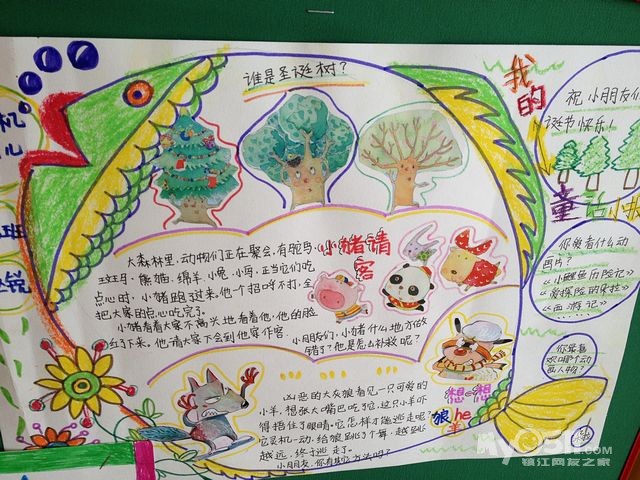 机
儿
班
锐
谁是圣诞树？
我
的
童话小报
祝小朋友们
诞节快乐！
小猪请
客
大森林里，动物们正在聚会，有鸵鸟、
斑马、熊猫、绵羊、小兔、小马，正当它们吃
点心时，小猪跑了过来。他一个招呼不打，全
把大家的点心吃完了。
小猪看着大家不高兴地看着他，他的脸
红了下来。他请大家下会到他家作客。
小朋友们，小猪什么地方做
错了？他是怎么补救呢？
你爱看什么动
画片？
《小鲤鱼历险记》
《爱探险的朵拉》
《西游记》
……
你最喜
欢哪个动
画人物？
想想
狼he
羊
凶恶的大灰狼看见一只可爱的
小羊，想张大嘴巴吃了它，这只小羊吓
得捂住了眼睛。它怎样才能逃走呢？
它灵机一动，给狼跳了个舞，越跳
越远，终于逃走了。
小朋友，你有其它方法吗？
镇江网友之家